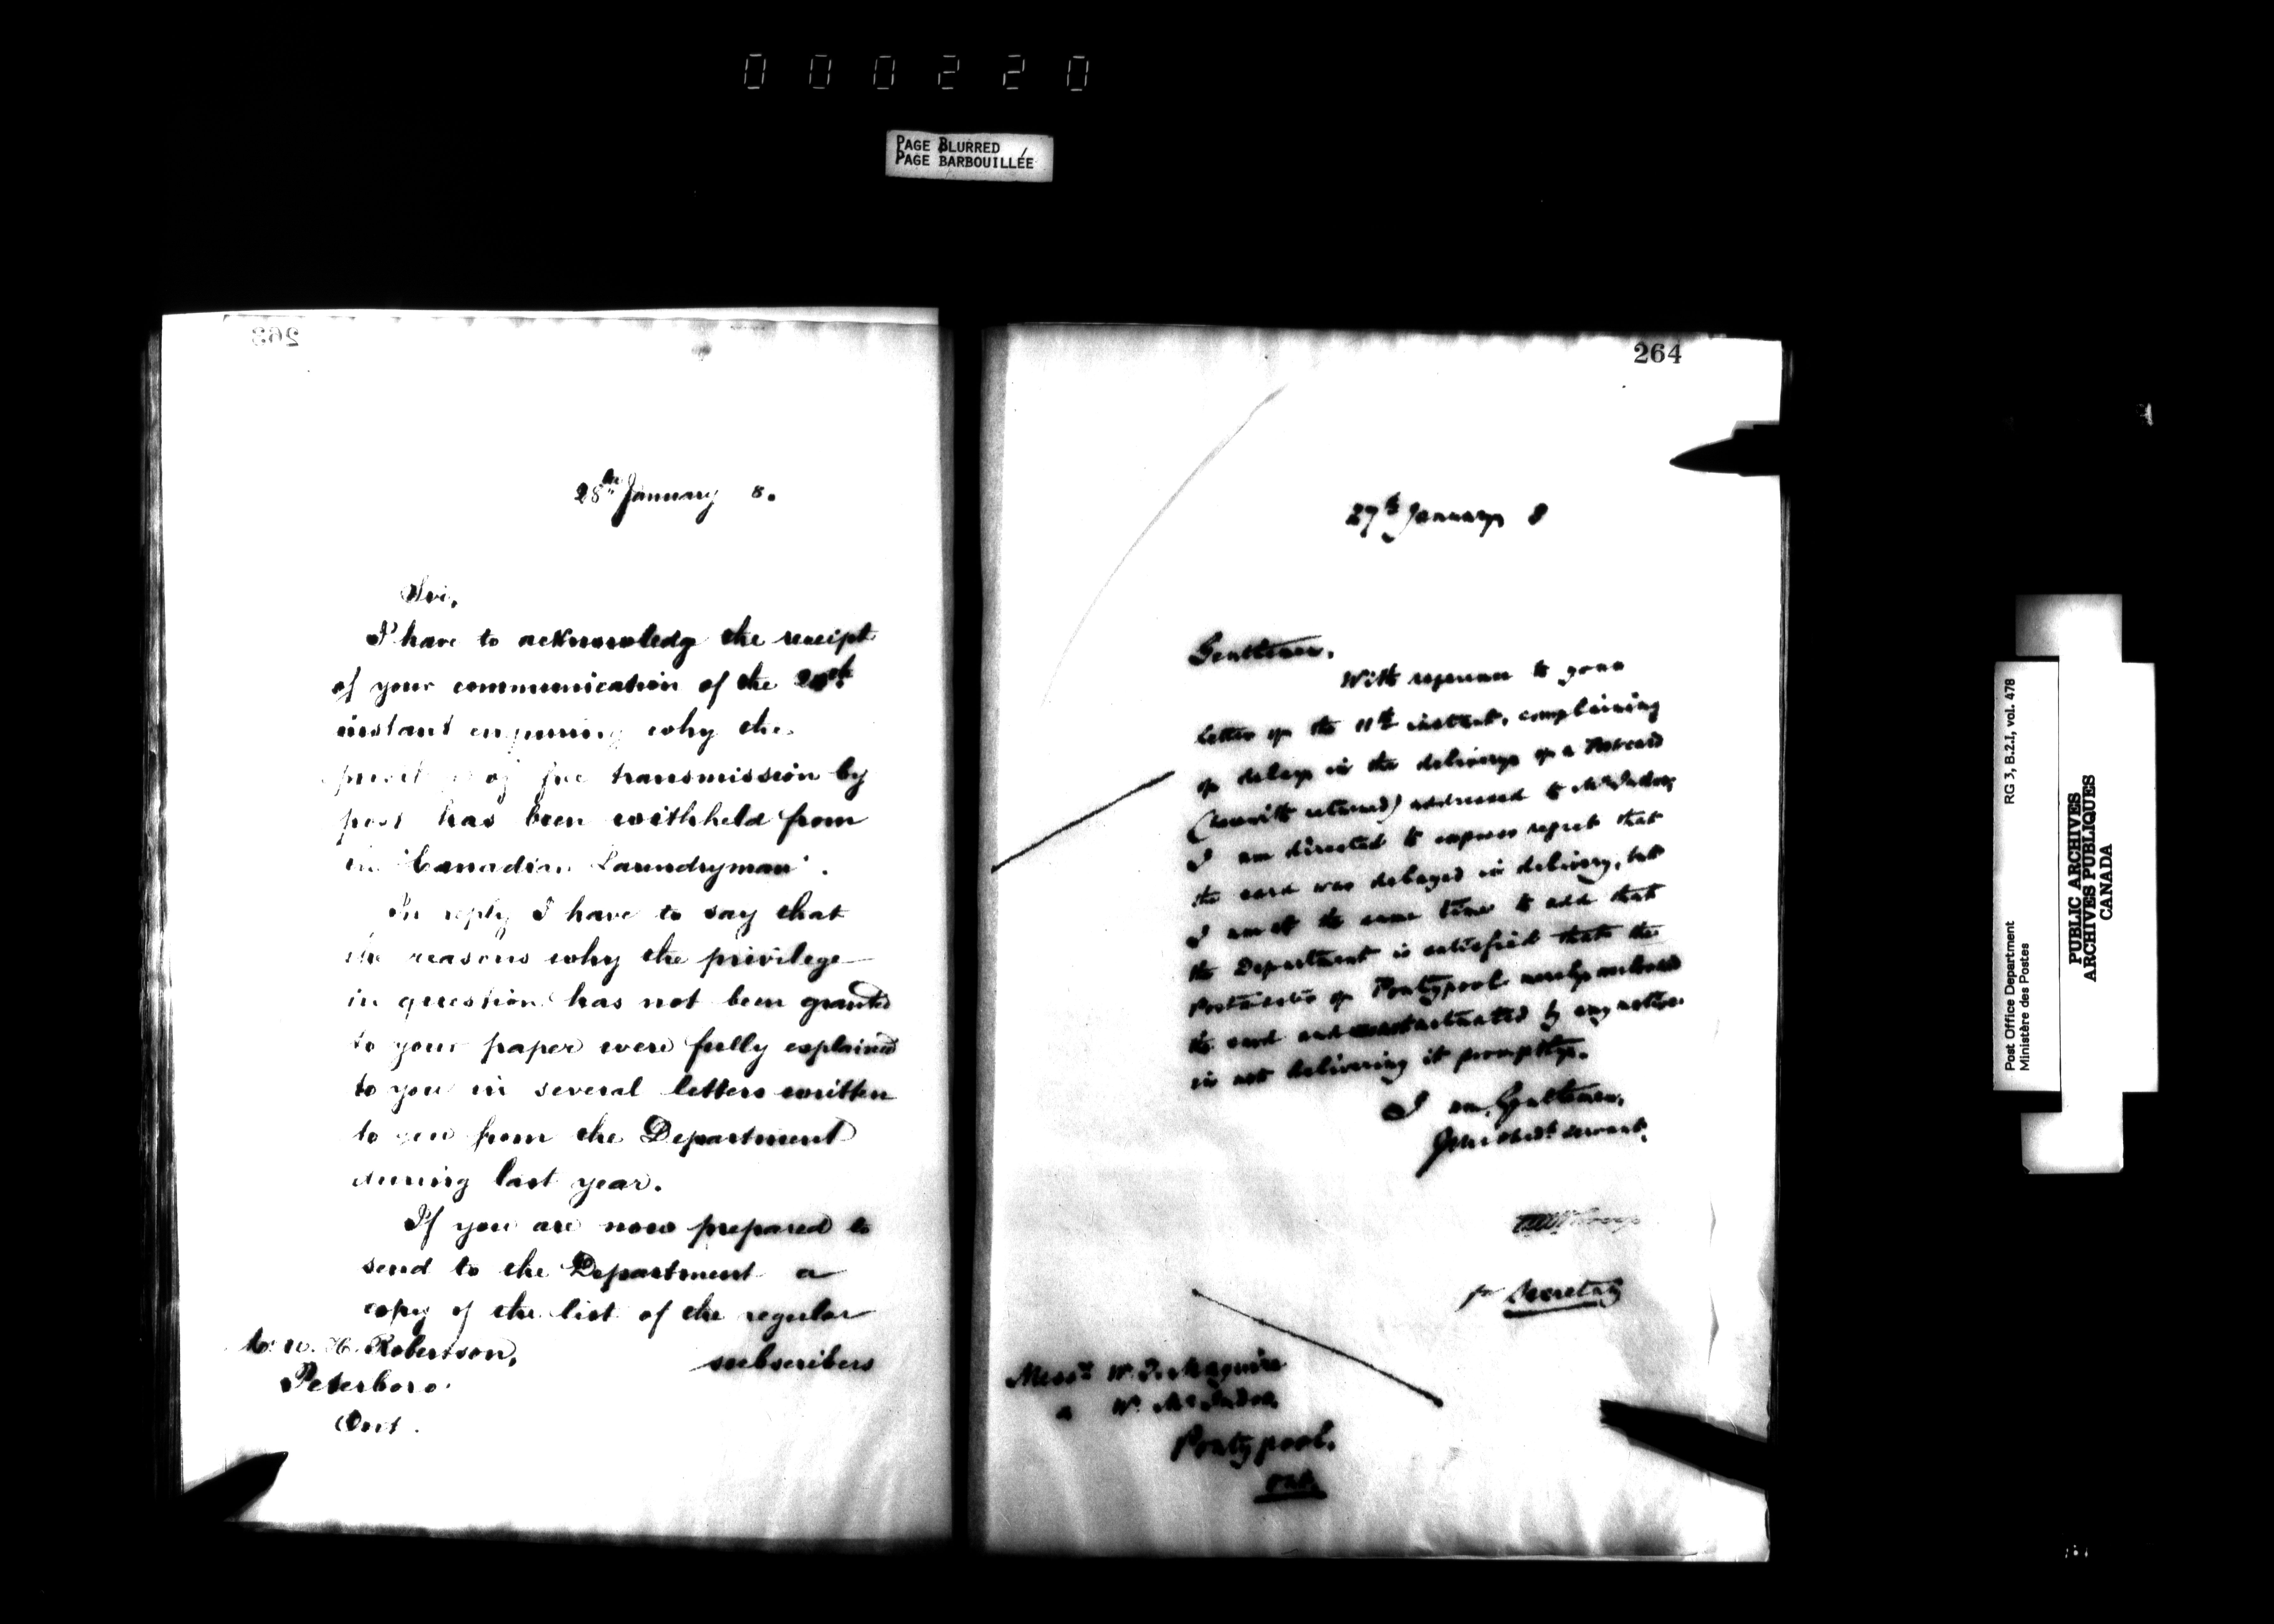 000220
PAGE BLURRED
PAGE BARBOUILLÉE
263
28th January 8.
Sir,
I have to acknowledg the receipt
of your communication of the
instant enquiring why the
of free transmission by
post has been withheld from
"Canadian Laundryman".
In reply I have to say that
the reasons why the privilege
in question has not been granted
to your paper were fully explained
to you in several letters written
to you from the Department
during last year.
If you are now prepared to
send to the Department a
copy of the list of the regular
subscribers
W. H. Robertson,
Peterboro.
Ont.
264
27th January 8
Gentlemen,
With reference to your
letter of the 11th instant, complaining
of delay in the delivery of a Postcard
(herewith returned) addressed to Mr
I am directed to express regret that
the card was delayed in delivery, but
I am at the same time to add that
the Department is satisfied that the
Postmaster of Pontypool merely
the card and was actuated by any motive
in not delivering it promptly.
I am, Gentlemen,
Your obedt servant,
for Secretary
Messrs W. J. Maguire
& W.
Pontypool.
Ont.
Post Office Department
Ministère des Postes
RG 3, B.2.I, vol. 478
PUBLIC ARCHIVES
ARCHIVES PUBLIQUES
CANADA